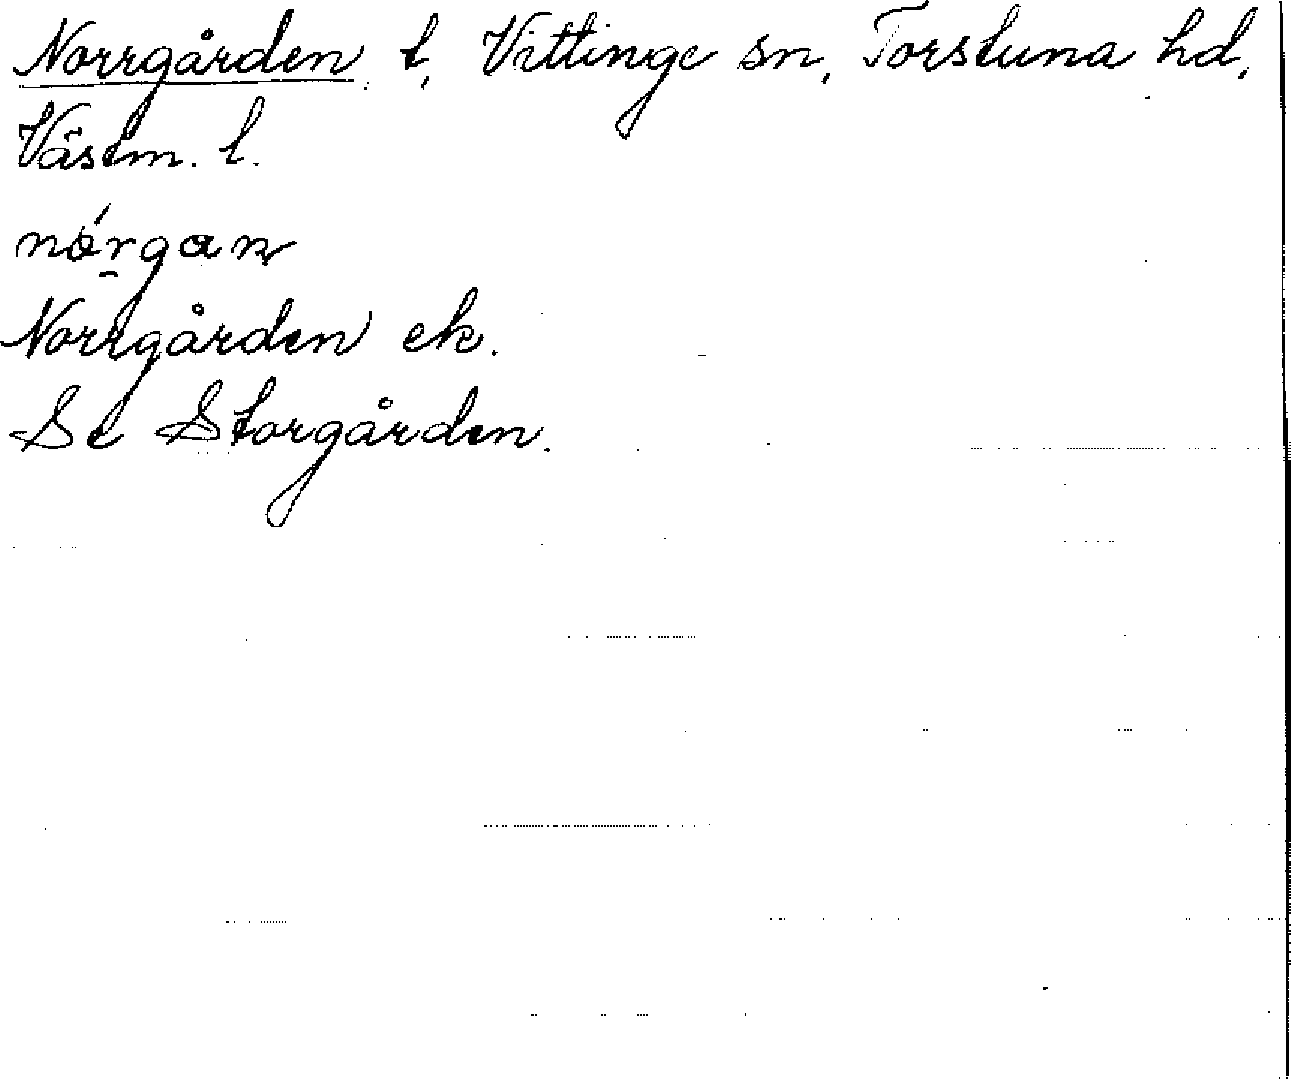 Norrgården t, Vittinge sn, Torstuna hd,
Västm. l.
nórgan
Norrgården ek.
Se Storgården.